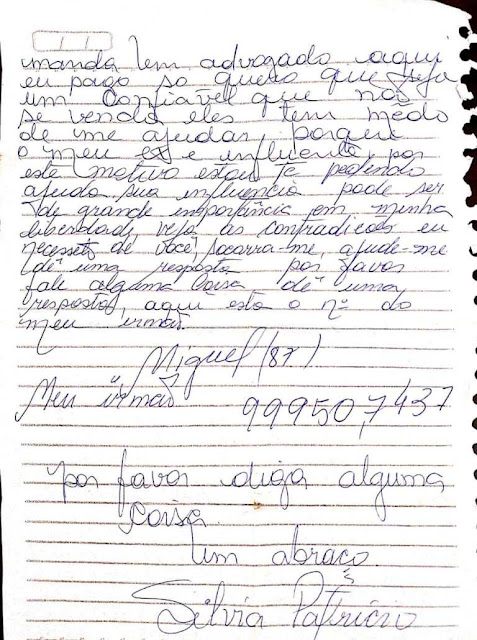 manda um advogado aqui
eu pago so quero que seja
um confiavel que não
se venda eles tem medo
de me ajudar, porque
o meu ex e influente, por
este motivo estou te pedindo
ajuda sua influencia pode ser
de grande importância em minha
liberdade, veja as contradicoes eu
necessito de você, socorra-me, ajude-me
dê uma resposta por favor
fale alguma coisa dê uma
resposta, aqui esta o nº do
meu irmão.
Miguel (87)
Meu irmão 999507437
por favor diga alguma
coisa.
Um abraço.
Silvia Patricio